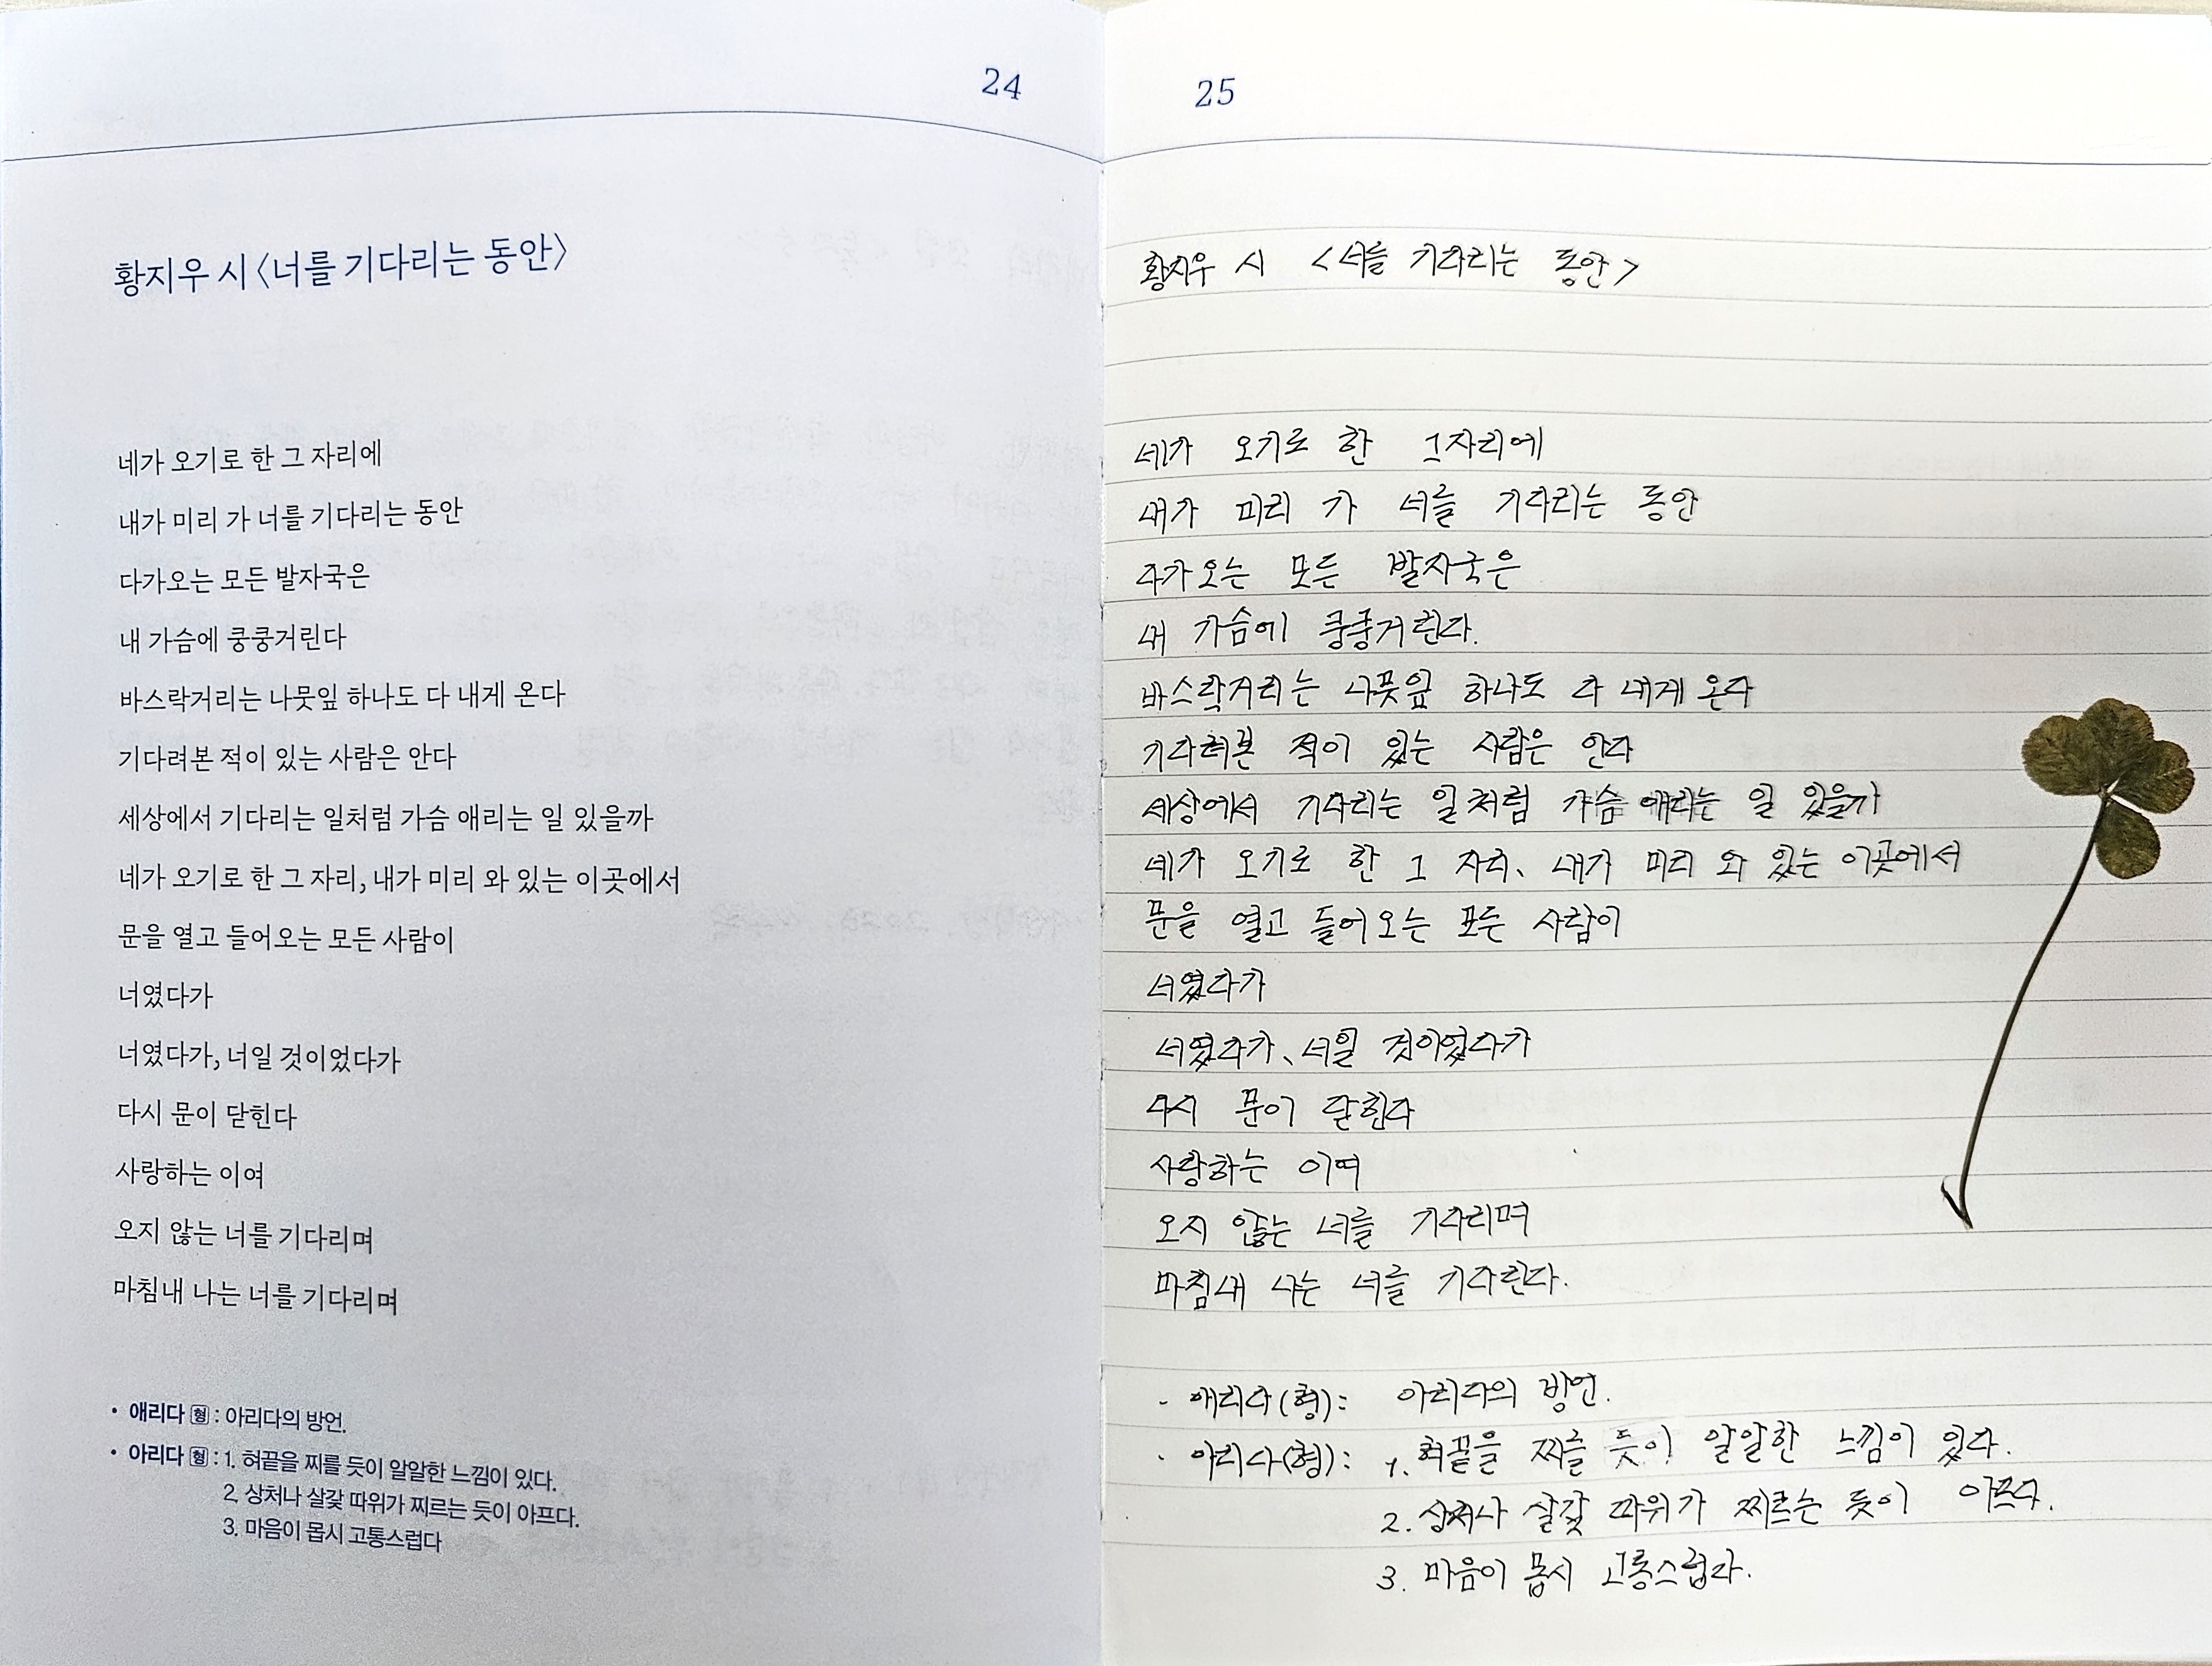 24
황지우 시 〈너를 기다리는 동안〉
네가 오기로 한 그 자리에
내가 미리 가 너를 기다리는 동안
다가오는 모든 발자국은
내 가슴에 쿵쿵거린다
바스락거리는 나뭇잎 하나도 다 내게 온다
기다려본 적이 있는 사람은 안다
세상에서 기다리는 일처럼 가슴 애리는 일 있을까
네가 오기로 한 그 자리, 내가 미리 와 있는 이곳에서
문을 열고 들어오는 모든 사람이
너였다가
너였다가, 너일 것이었다가
다시 문이 닫힌다
사랑하는 이여
오지 않는 너를 기다리며
마침내 나는 너를 기다리며
• 애리다 형 : 아리다의 방언.
• 아리다 형 : 1. 혀끝을 찌를 듯이 알알한 느낌이 있다.
2. 상처나 살갗 따위가 찌르는 듯이 아프다.
3. 마음이 몹시 고통스럽다
25
황지우 시 <너를 기다리는 동안>
네가 오기로 한 그자리에
내가 미리 가 너를 기다리는 동안
다가오는 모든 발자국은
내 가슴에 쿵쿵거린다.
바스락거리는 나뭇잎 하나도 다 내게 온다
기다려본 적이 있는 사람은 안다
세상에서 기다리는 일처럼 가슴 애리는 일 있을까
네가 오기로 한 그 자리、내가 미리 와 있는 이곳에서
문을 열고 들어오는 모든 사람이
너였다가
너였다가、너일 것이었다가
다시 문이 닫힌다
사랑하는 이여
오지 않는 너를 기다리며
마침내 나는 너를 기다린다.
· 애리다(형): 아리다의 방언.
· 아리다(형): 1. 혀끝을 찌를 듯이 알알한 느낌이 있다.
2. 상처나 살갗 따위가 찌르는 듯이 아프다.
3. 마음이 몹시 고통스럽다.